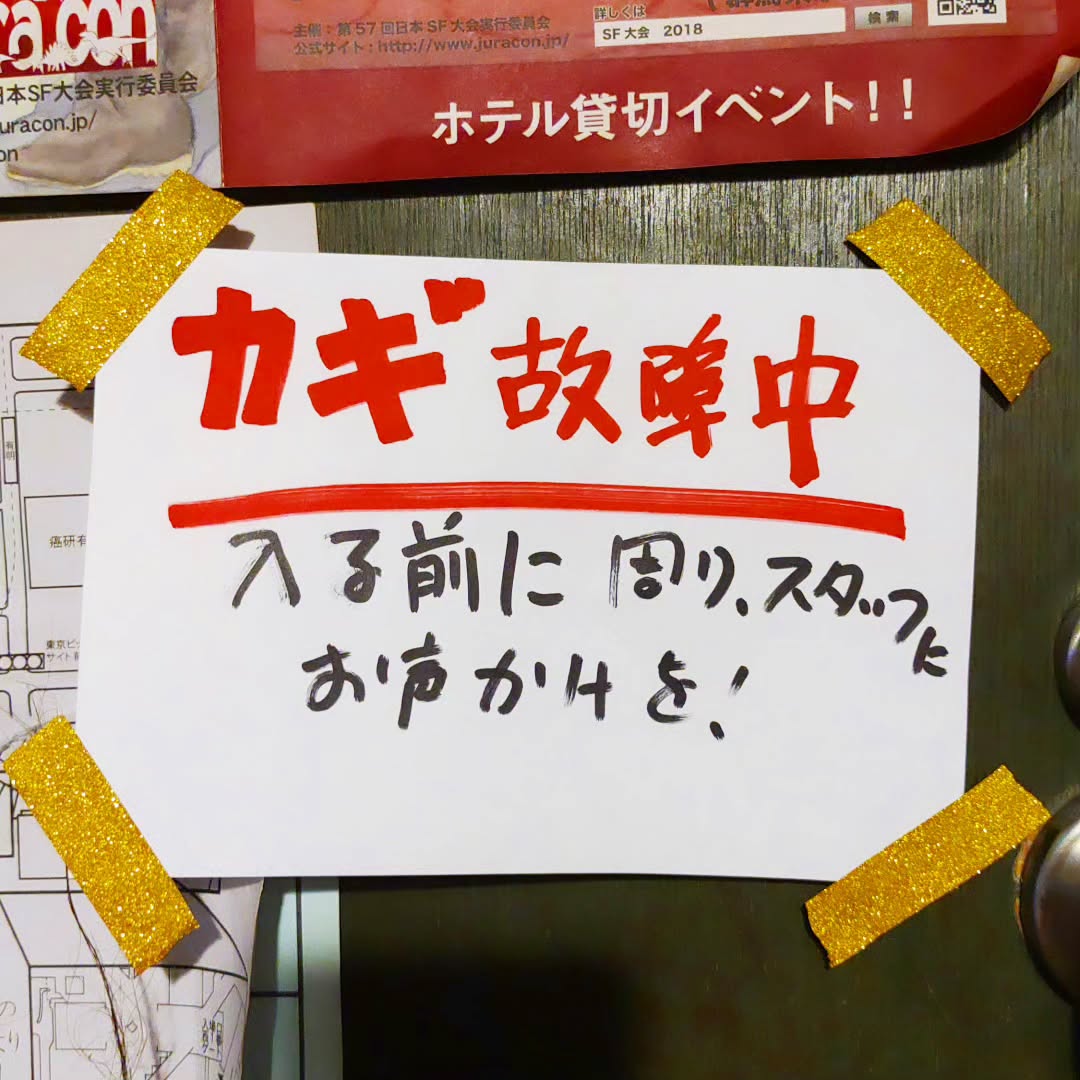 ra.con
日本SF大会実行委員会
uracon.jp/
on
主催：第57回日本SF大会実行委員会
公式サイト：http://www.juracon.jp/
詳しくは
SF大会 2018
検索
ホテル貸切イベント！！
カギ故障中
入る前に周り、スタッフに
お声かけを！
有明
癌研有
東京ビッ
サイト前